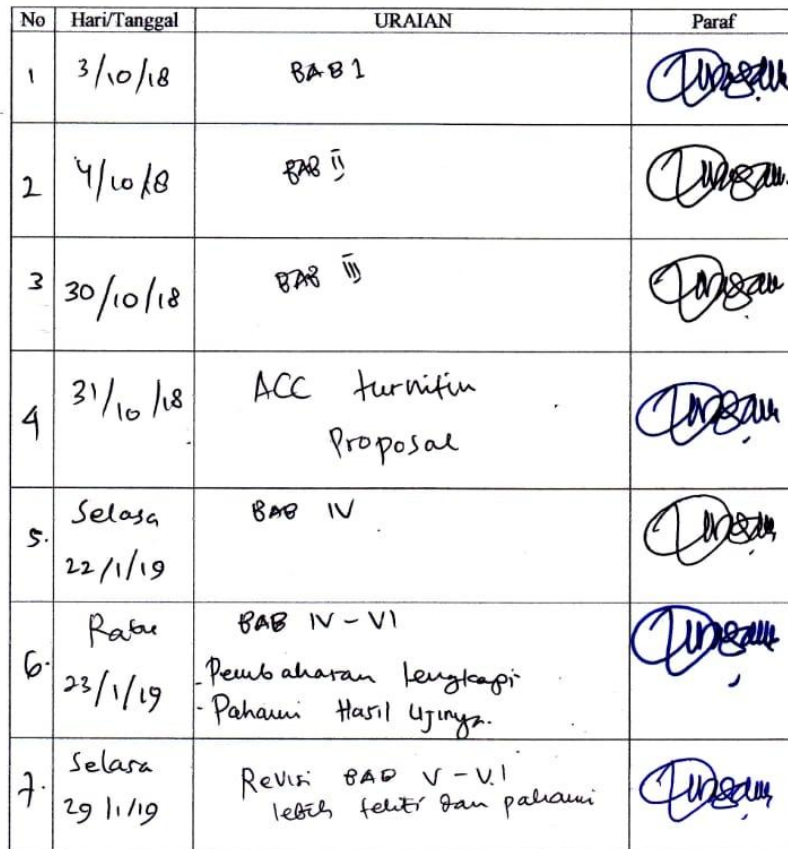 No Hari/Tanggal URAIAN Paraf
1 3/10/18 BAB 1
2 4/10/18 BAB II
3 30/10/18 BAB III
4 31/10/18 ACC turnitin
Proposal
5. Selasa BAB IV
22/1/19
6. Rabu BAB IV - VI
23/1/19 - Pembahasan lengkapi
- Pahami Hasil Ujinya.
7. Selasa Revisi BAB V - VI
29/1/19 lebih teliti dan pahami